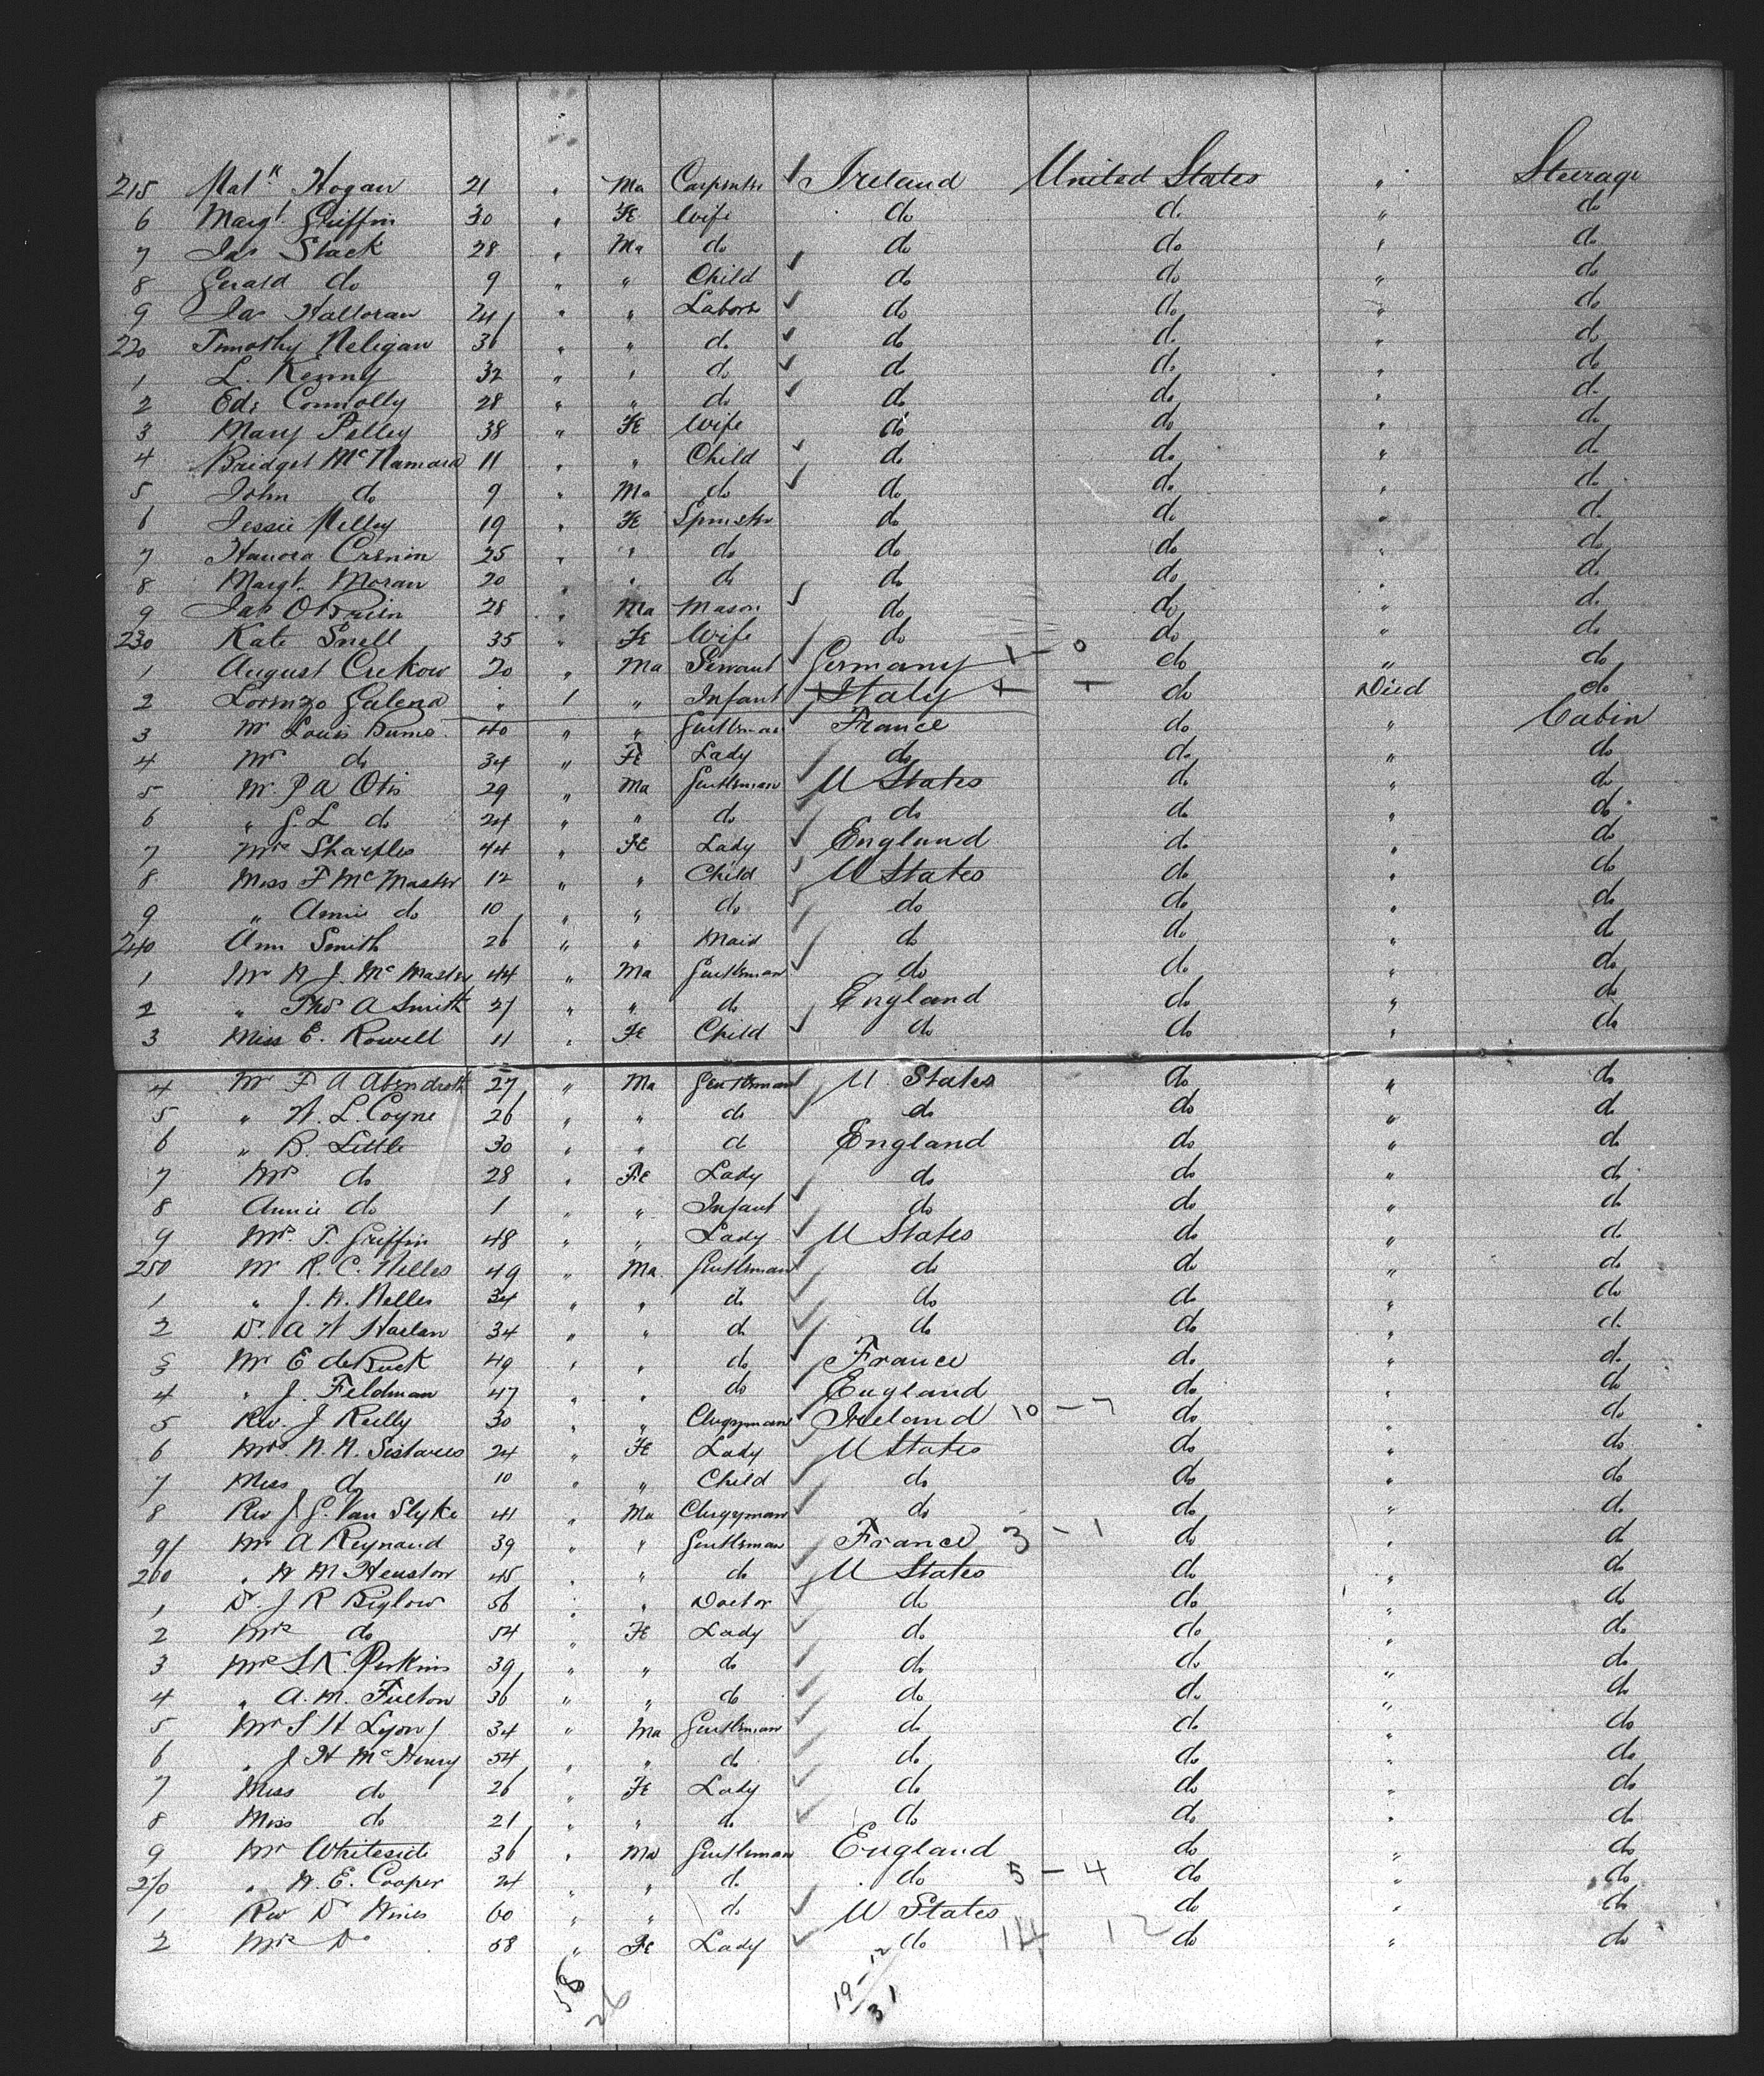 215 Matw Hogan 21 " Ma Carpenter Ireland United States " Steerage
6 Margt. Griffin 30 " Fe Wife do do " do
7 Jas Stack 28 " Ma do do do " do
8 Gerald do 9 " " Child do do " do
9 Jas Halloran 24 " " Laborer do do " do
220 Timothy Neligan 36 " " do do do " do
1 L. Kenny 32 " " do do do " do
2 Ed. Connolly 28 " " do do do " do
3 Mary Pelley 38 " Fe Wife do do " do
4 Bridget McNamara 11 " " Child do do " do
5 John do 9 " Ma do do do " do
6 Jessie Melley 19 " Fe Spinster do do " do
7 Hanora Cronin 25 " " do do do " do
8 Margt. Moran 20 " " do do do " do
9 Jas OBrien 28 " Ma Mason do do " do
230 Kate Snell 35 " Fe Wife do do " do
1 August 20 " Ma Servant Germany 1 - 0 do " do
2 Lorenzo Galena " 1 " Infant Italy do Died do
3 Mr Louis 40 " " Gentleman France do " Cabin
4 Mrs do 34 " Fe Lady do do " do
5 Mr. P A Otis 29 " Ma Gentleman U States do " do
6 " G. L do 24 " " do do do " do
7 Mrs Sharples 44 " Fe Lady England do " do
8 Miss F McMaster 12 " " Child U States do " do
9 " Annie do 10 " " do do do " do
240 Ann Smith 26 " " Maid do do " do
1 Mr W J. McMaster 44 " Ma Gentleman do do " do
2 " Thos A Smith 27 " " do England do " do
3 Miss E. Rowell 11 " Fe Child do do " do
4 Mr F A Abendroth 27 " Ma Gentleman U States do " do
5 " W. L. Coyne 26 " " do do do " do
6 " B. Little 30 " " do England do " do
7 Mrs do 28 " Fe Lady do do " do
8 Annie do 1 " " Infant do do " do
9 Mrs. T. Griffin 48 " " Lady U States do " do
250 Mr R. C. Nelles 49 " Ma Gentleman do do " do
1 " J. N. Nelles 34 " " do do do " do
2 Dr. A W Harlan 34 " " do do do " do
3 Mr E deBuck 49 " " do France do " do
4 " J. Feldman 47 " " do England do " do
5 Rev. J Reilly 30 " " Clergyman Ireland 10 - 7 do " do
6 Mrs. W. H. Sistares 24 " Fe Lady U States do " do
7 Miss do 10 " " Child do do " do
8 Rev J G. Van Slyke 41 " Ma Clergyman do do " do
9 Mr A Reynaud 39 " " Gentleman France 3 - 1 do " do
260 " W M Heuston 45 " " do U States do " do
1 Dr. J R Biglow 56 " " Doctor do do " do
2 Mrs do 54 " Fe Lady do do " do
3 Mrs S. K. Perkins 39 " " do do do " do
4 " A. M. Fulton 36 " " do do do " do
5 Mr S H Lyon 34 " Ma Gentleman do do " do
6 " J H McHenry 54 " " do do do " do
7 Miss do 26 " Fe Lady do do " do
8 Miss do 21 " " do do do " do
9 Mr Whiteside 36 " Ma Gentleman England do " do
270 " W. E. Cooper 24 " " do do 5 - 4 do " do
1 Rev Dr Wines 60 " " do U States do " do
2 Mrs Do 58 " Fe Lady do 14 12 do " do
26
19 - 12
31